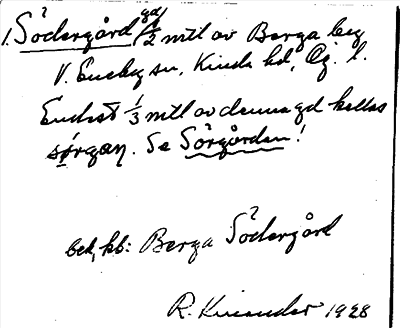 1. Södergård gd 1/2 mtl av Berga by
V. Eneby sn, Kinda hd, Ög. l.
Endast 1/3 mtl av denna gd kallas
sørgaɳ. Se Sörgården!
bed, kb: Berga Södergård
R. Kinander 1928